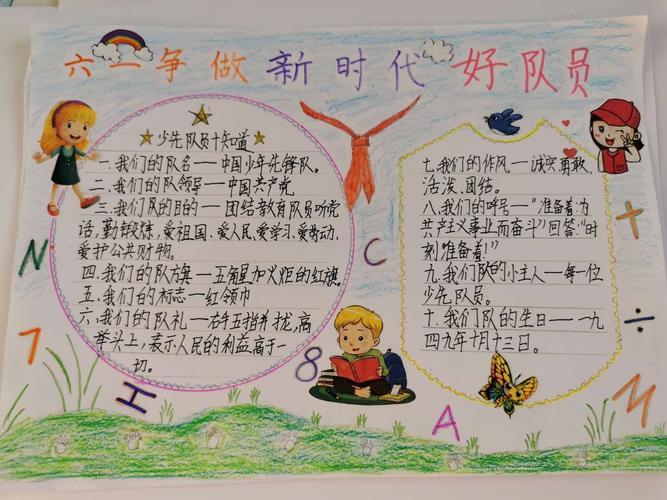 六一争做新时代好队员
少先队员十知道
一.我们的队名——中国少年先锋队。
二.我们的队领导——中国共产党
三.我们队的目的——团结教育队员听党
话,勤锻炼,爱祖国、爱人民、爱学习、爱劳动、
爱护公共财物。
四.我们的队方旗——五角星加火炬的红旗。
五.我们的标志——红领巾
六.我们的队礼——右手五指并拢,高
举头上,表示人民的利益高于一
切。
七.我们的作风——诚实勇敢、
活泼、团结。
八.我们的呼号——“准备着:为
共产主义事业而奋斗”回答:“时
刻准备着!”
九.我们队的小主人——每一位
少先队员。
十.我们队的生日——一九
四九年十月十三日。
N
7
H
C
8
A
+
÷
M